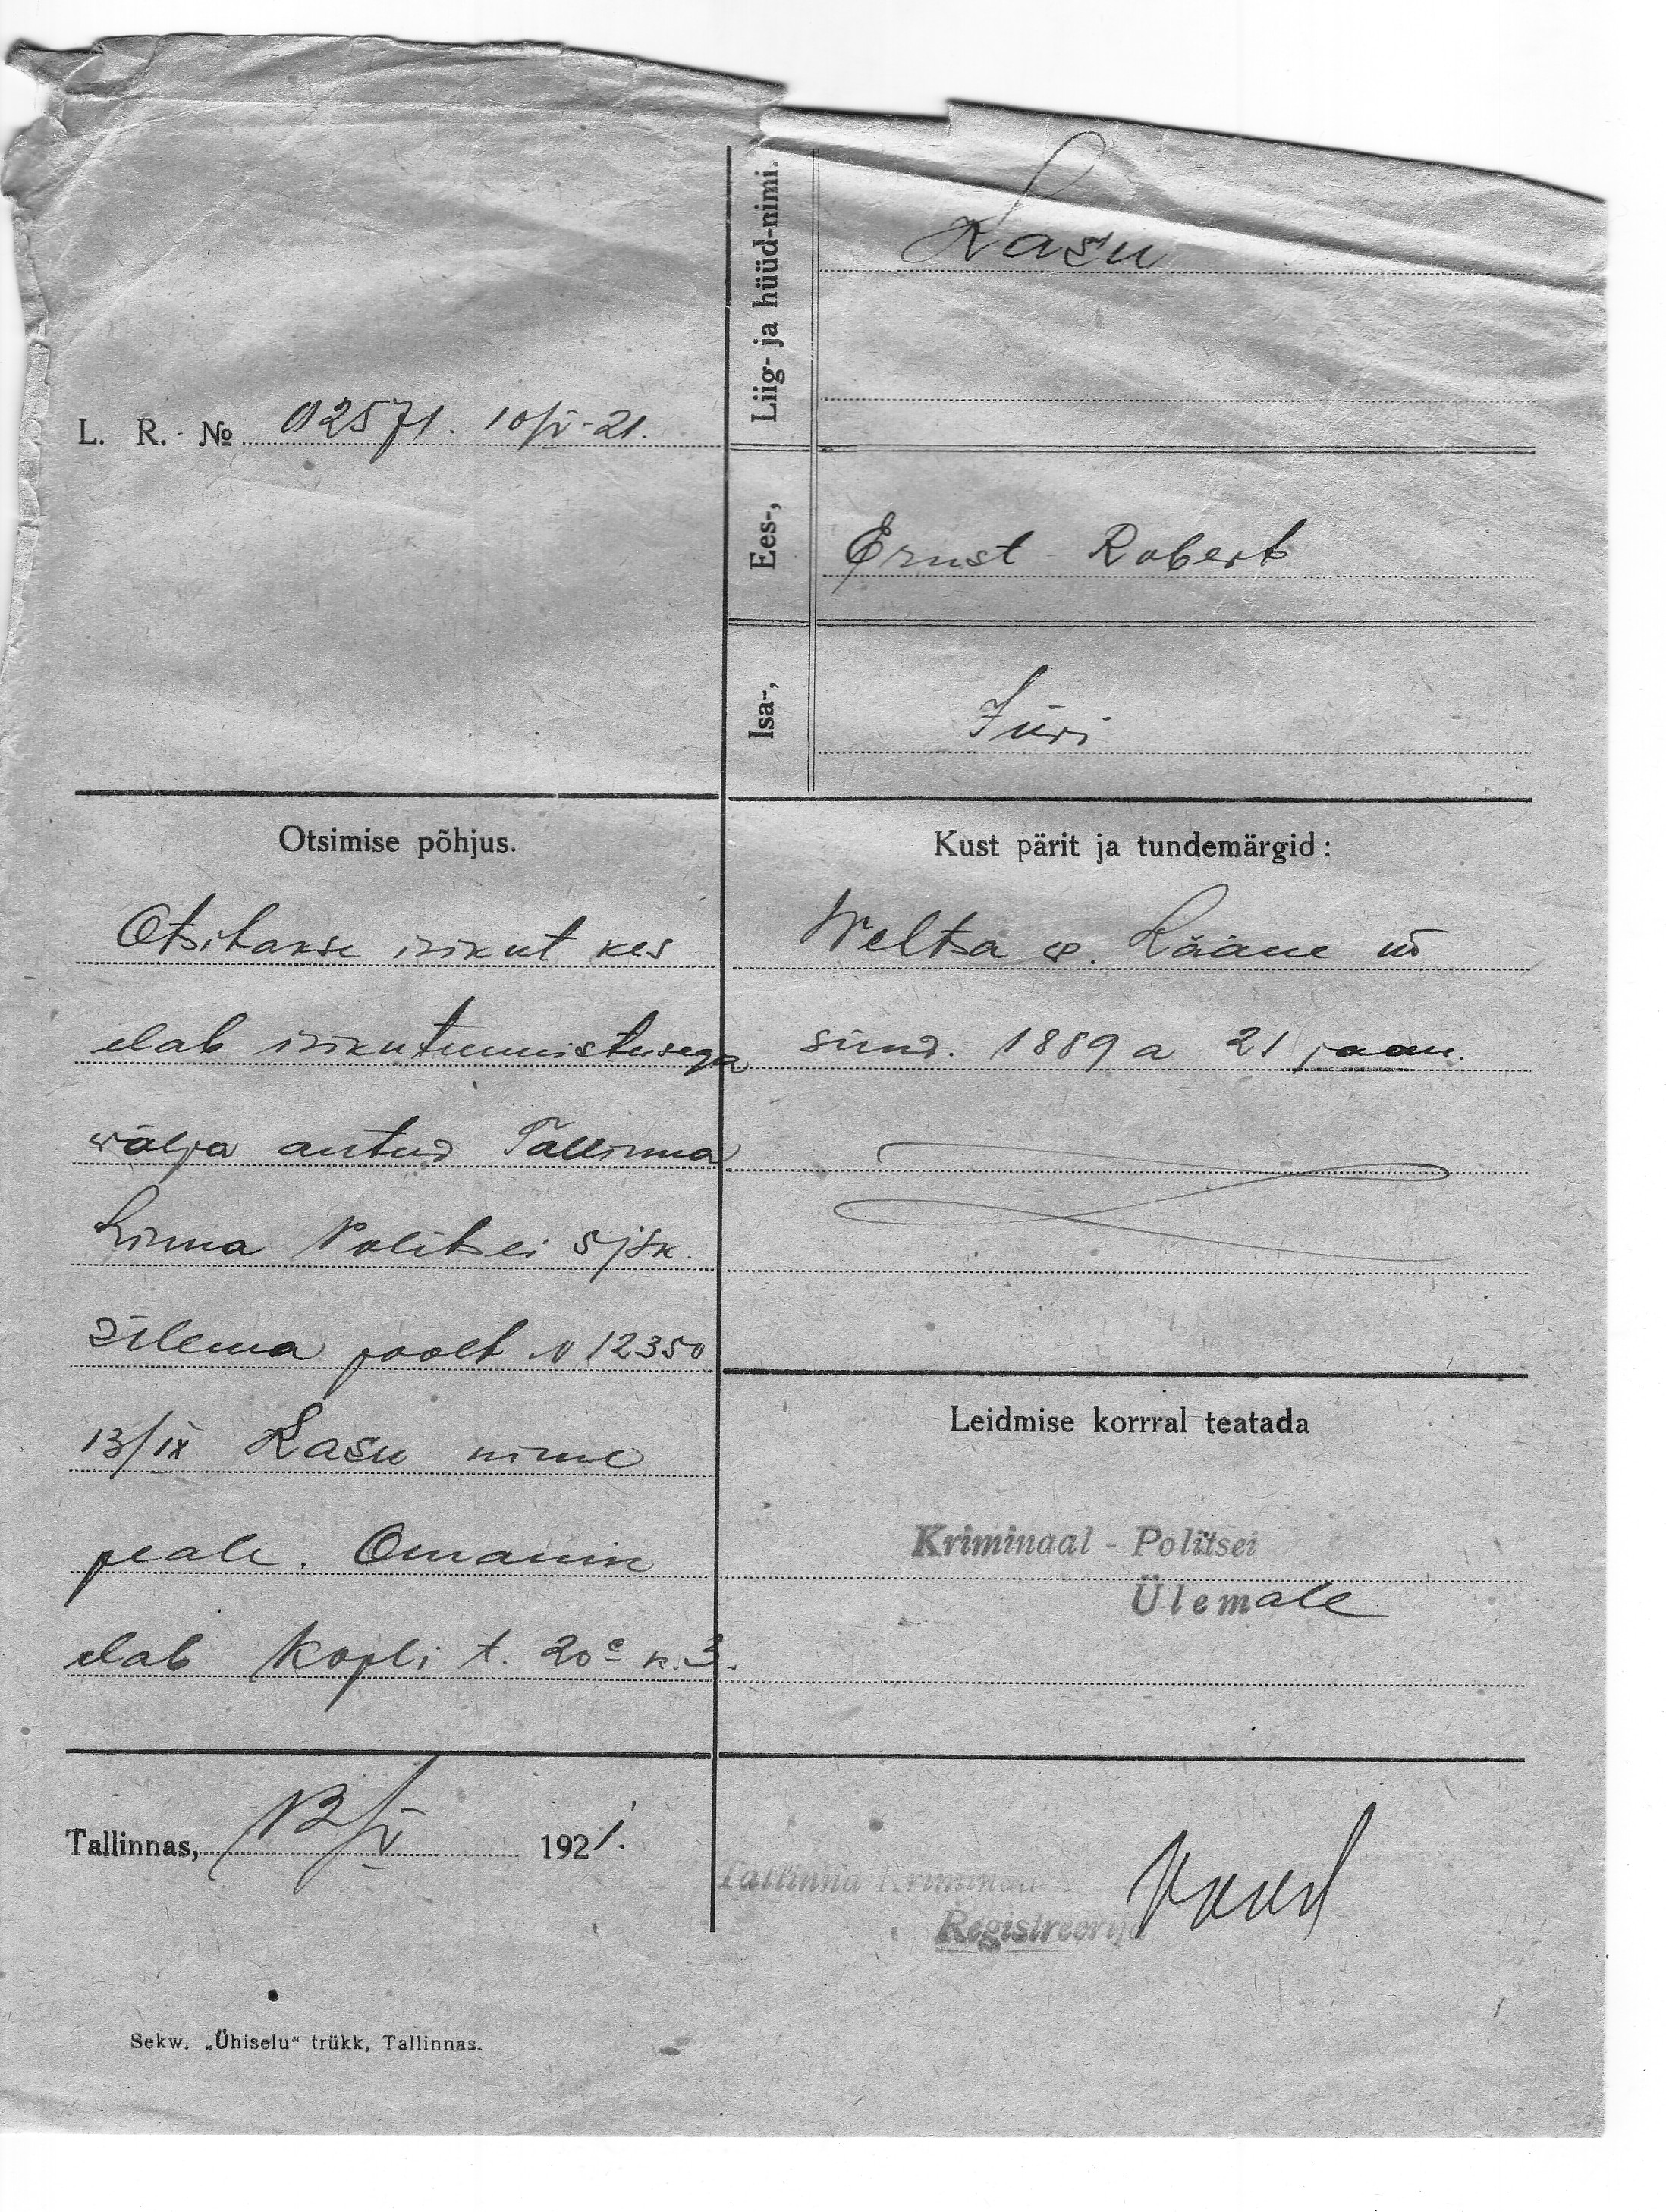 Liig- ja hüüd-nimi.
Lasu
L. R. № 02571. 10/V-21.
Ees-,
Ernst-Robert
Isa-,
Jüri
Otsimise põhjus.
Otsitakse isikut kes
elab isikutunnistusega
wälja antud Tallinna
Linna Politsei 5 jsk.
Ülema poolt N 12350
13/IX Lasu nime
peale. Omanik
elab Kopli t. 20c k. 3.
Kust pärit ja tundemärgid:
Weltsa w. Lääne m
sünd. 1889 a 21 jaan.
Leidmise korrral teatada
Kriminaal - Politsei
Ülemale
Tallinnas, 13/V 1921.
Tallinna Kriminaal
Registreerija
Sekw. „Ühiselu“ trükk, Tallinnas.